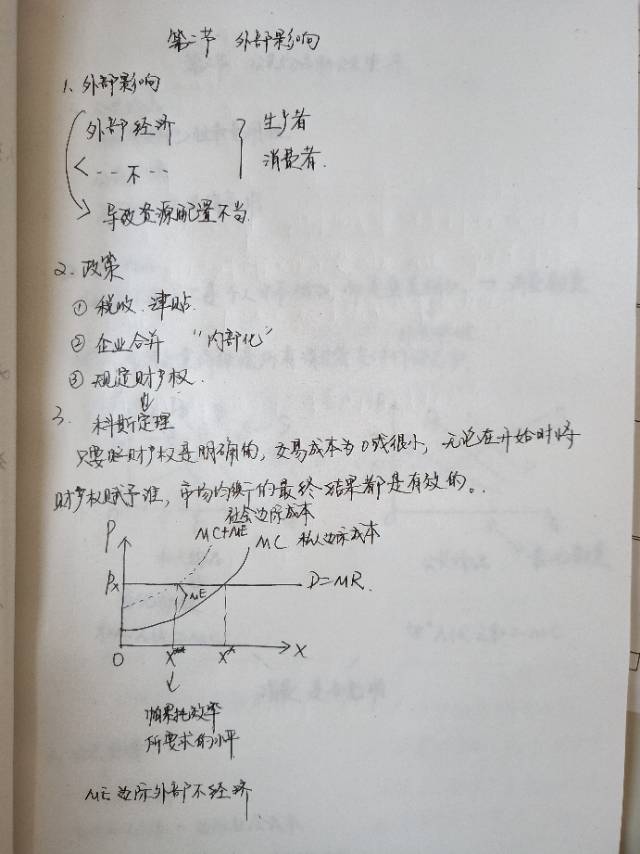 第二节 外部影响
1、外部影响
外部经济 生产者
- - 不 - - 消费者.
导致资源配置不当.
2、政策
① 税收、津贴
② 企业合并 “内部化”
③ 规定财产权.
3. 科斯定理
只要财产权是明确的, 交易成本为0或很小, 无论在开始时将
财产权赋予谁, 市场均衡的最终结果都是有效的。
社会边际成本
P MC+ME MC 私人边际成本
Px D=MR.
ME
O X** X* X
帕累托效率
所要求的水平
ME 边际外部不经济